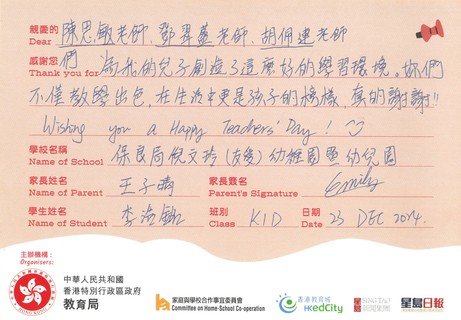 親愛的 陳思敏老師、鄧羿蓋老師、胡佩連老師
Dear
感謝您 們 為我的兒子創造了這麼好的學習環境。妳們
Thank you for
不僅教學出色,在生活中更是孩子的榜樣,真的謝謝!!
Wishing you a Happy Teachers' Day!
學校名稱 保良局倪文玲(友愛)幼稚園暨幼兒園
Name of School
家長姓名 王子晴 家長簽名 Emily
Name of Parent Parent's Signature
學生姓名 李 班別 K1D 日期 23 DEC 2024.
Name of Student Class Date
主辦機構:
Organisers:
中華人民共和國
香港特別行政區政府
教育局
家庭與學校合作事宜委員會
Committee on Home-School Co-operation
香港教育城
HKedCity
SING TAO
星島新聞集團
星島日報